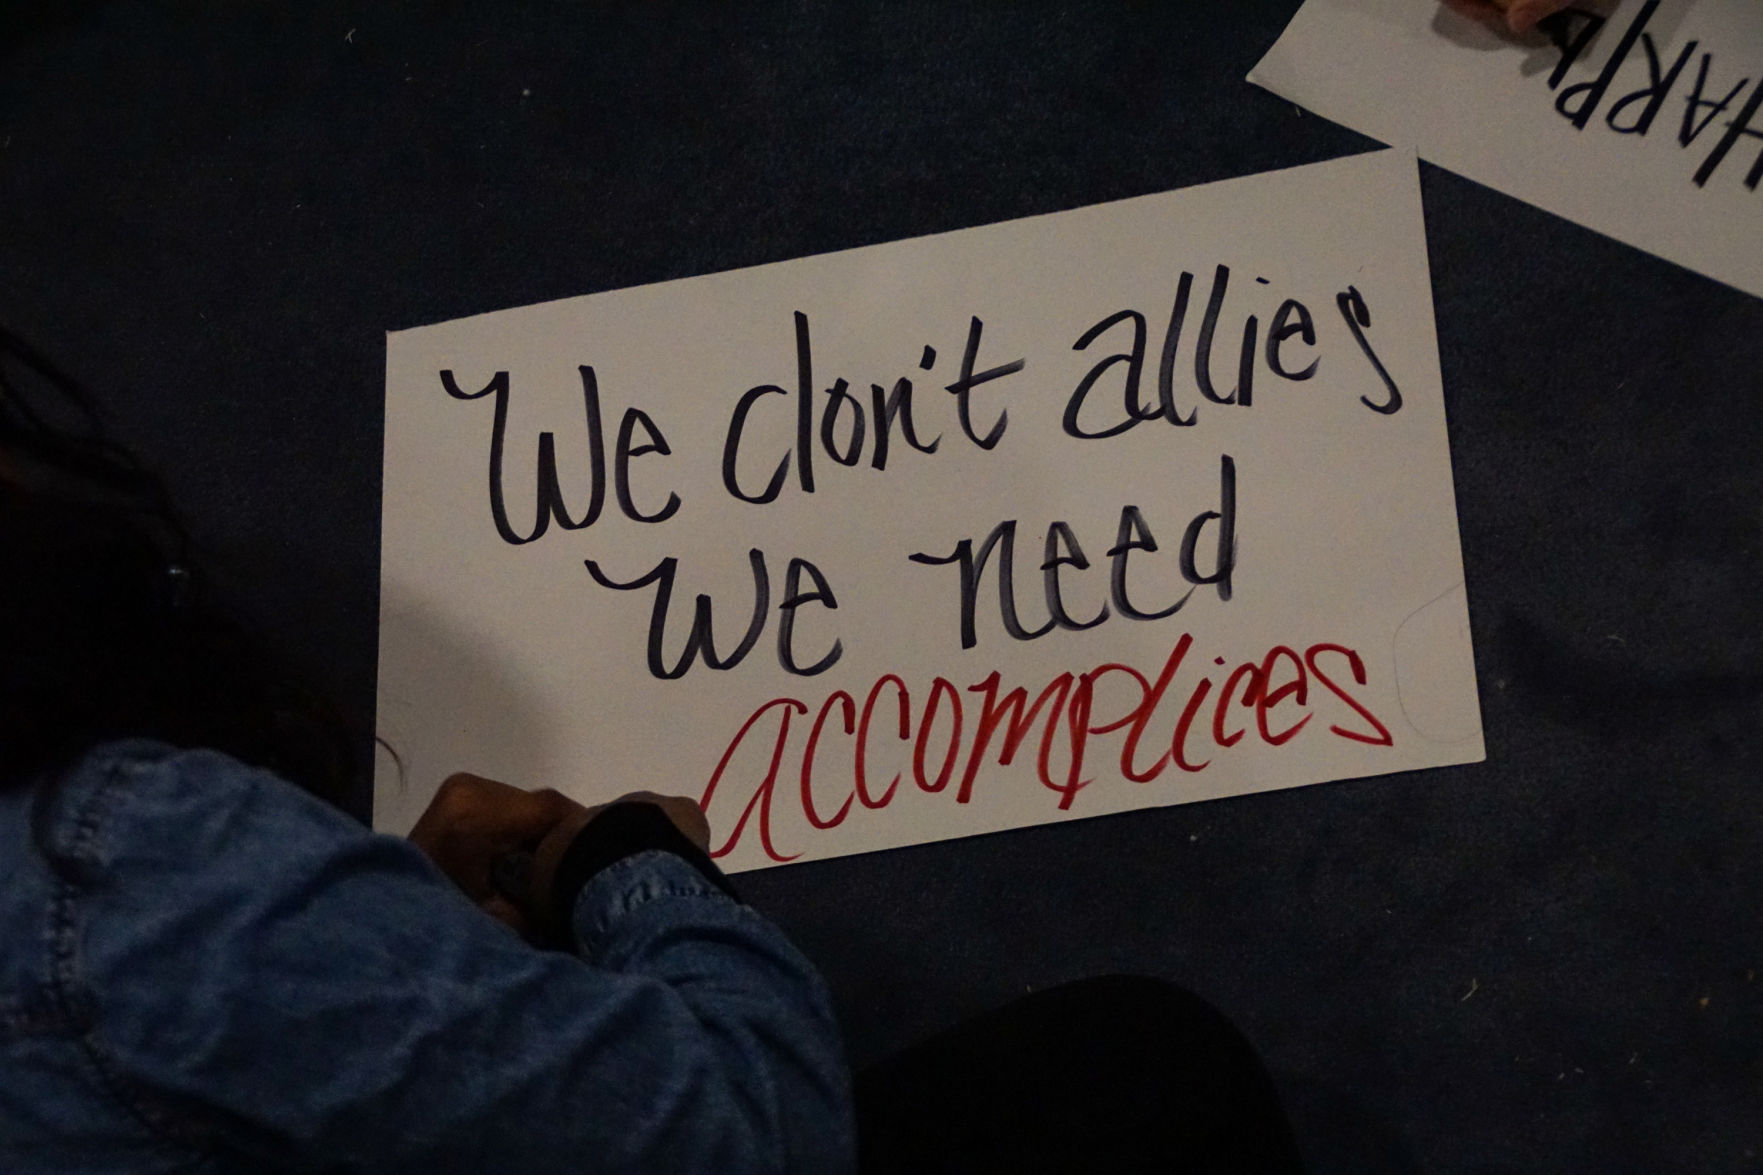 We don't allies
We need
accomplices